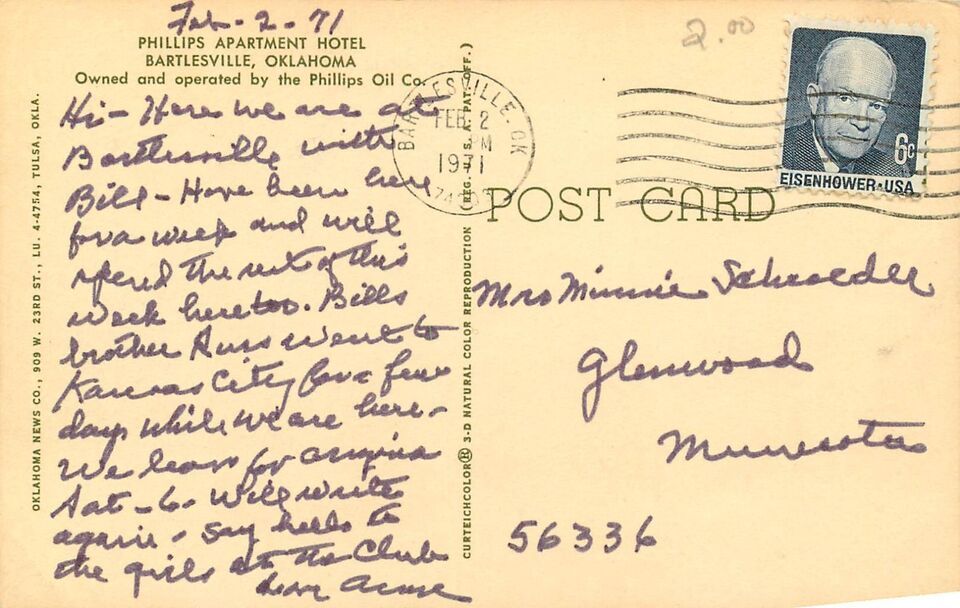 Feb - 2 - 71
PHILLIPS APARTMENT HOTEL
BARTLESVILLE, OKLAHOMA
Owned and operated by the Phillips Oil Co.
Hi - Here we are at
Bartlesville with
Bill - Have been here
for a week and will
spend the rest of this
week here too. Bills
brother Russ went to
Kansas City for a few
days while we are here -
We leave for
Sat - 6 - Will write
again - Say hello to
the girls at the Club
Love
OKLAHOMA NEWS CO., 909 W. 23RD ST., LU. 4-4754, TULSA, OKLA.
CURTEICHCOLOR® 3-D NATURAL COLOR REPRODUCTION (REG. U.S.A. PAT. OFF.)
BARTLESVILLE, OK
FEB 2
PM
1971
2.00
6c
EISENHOWER·USA
POST CARD
Mrs Minnie Schroeder
Glenwood
Minnesota
56336